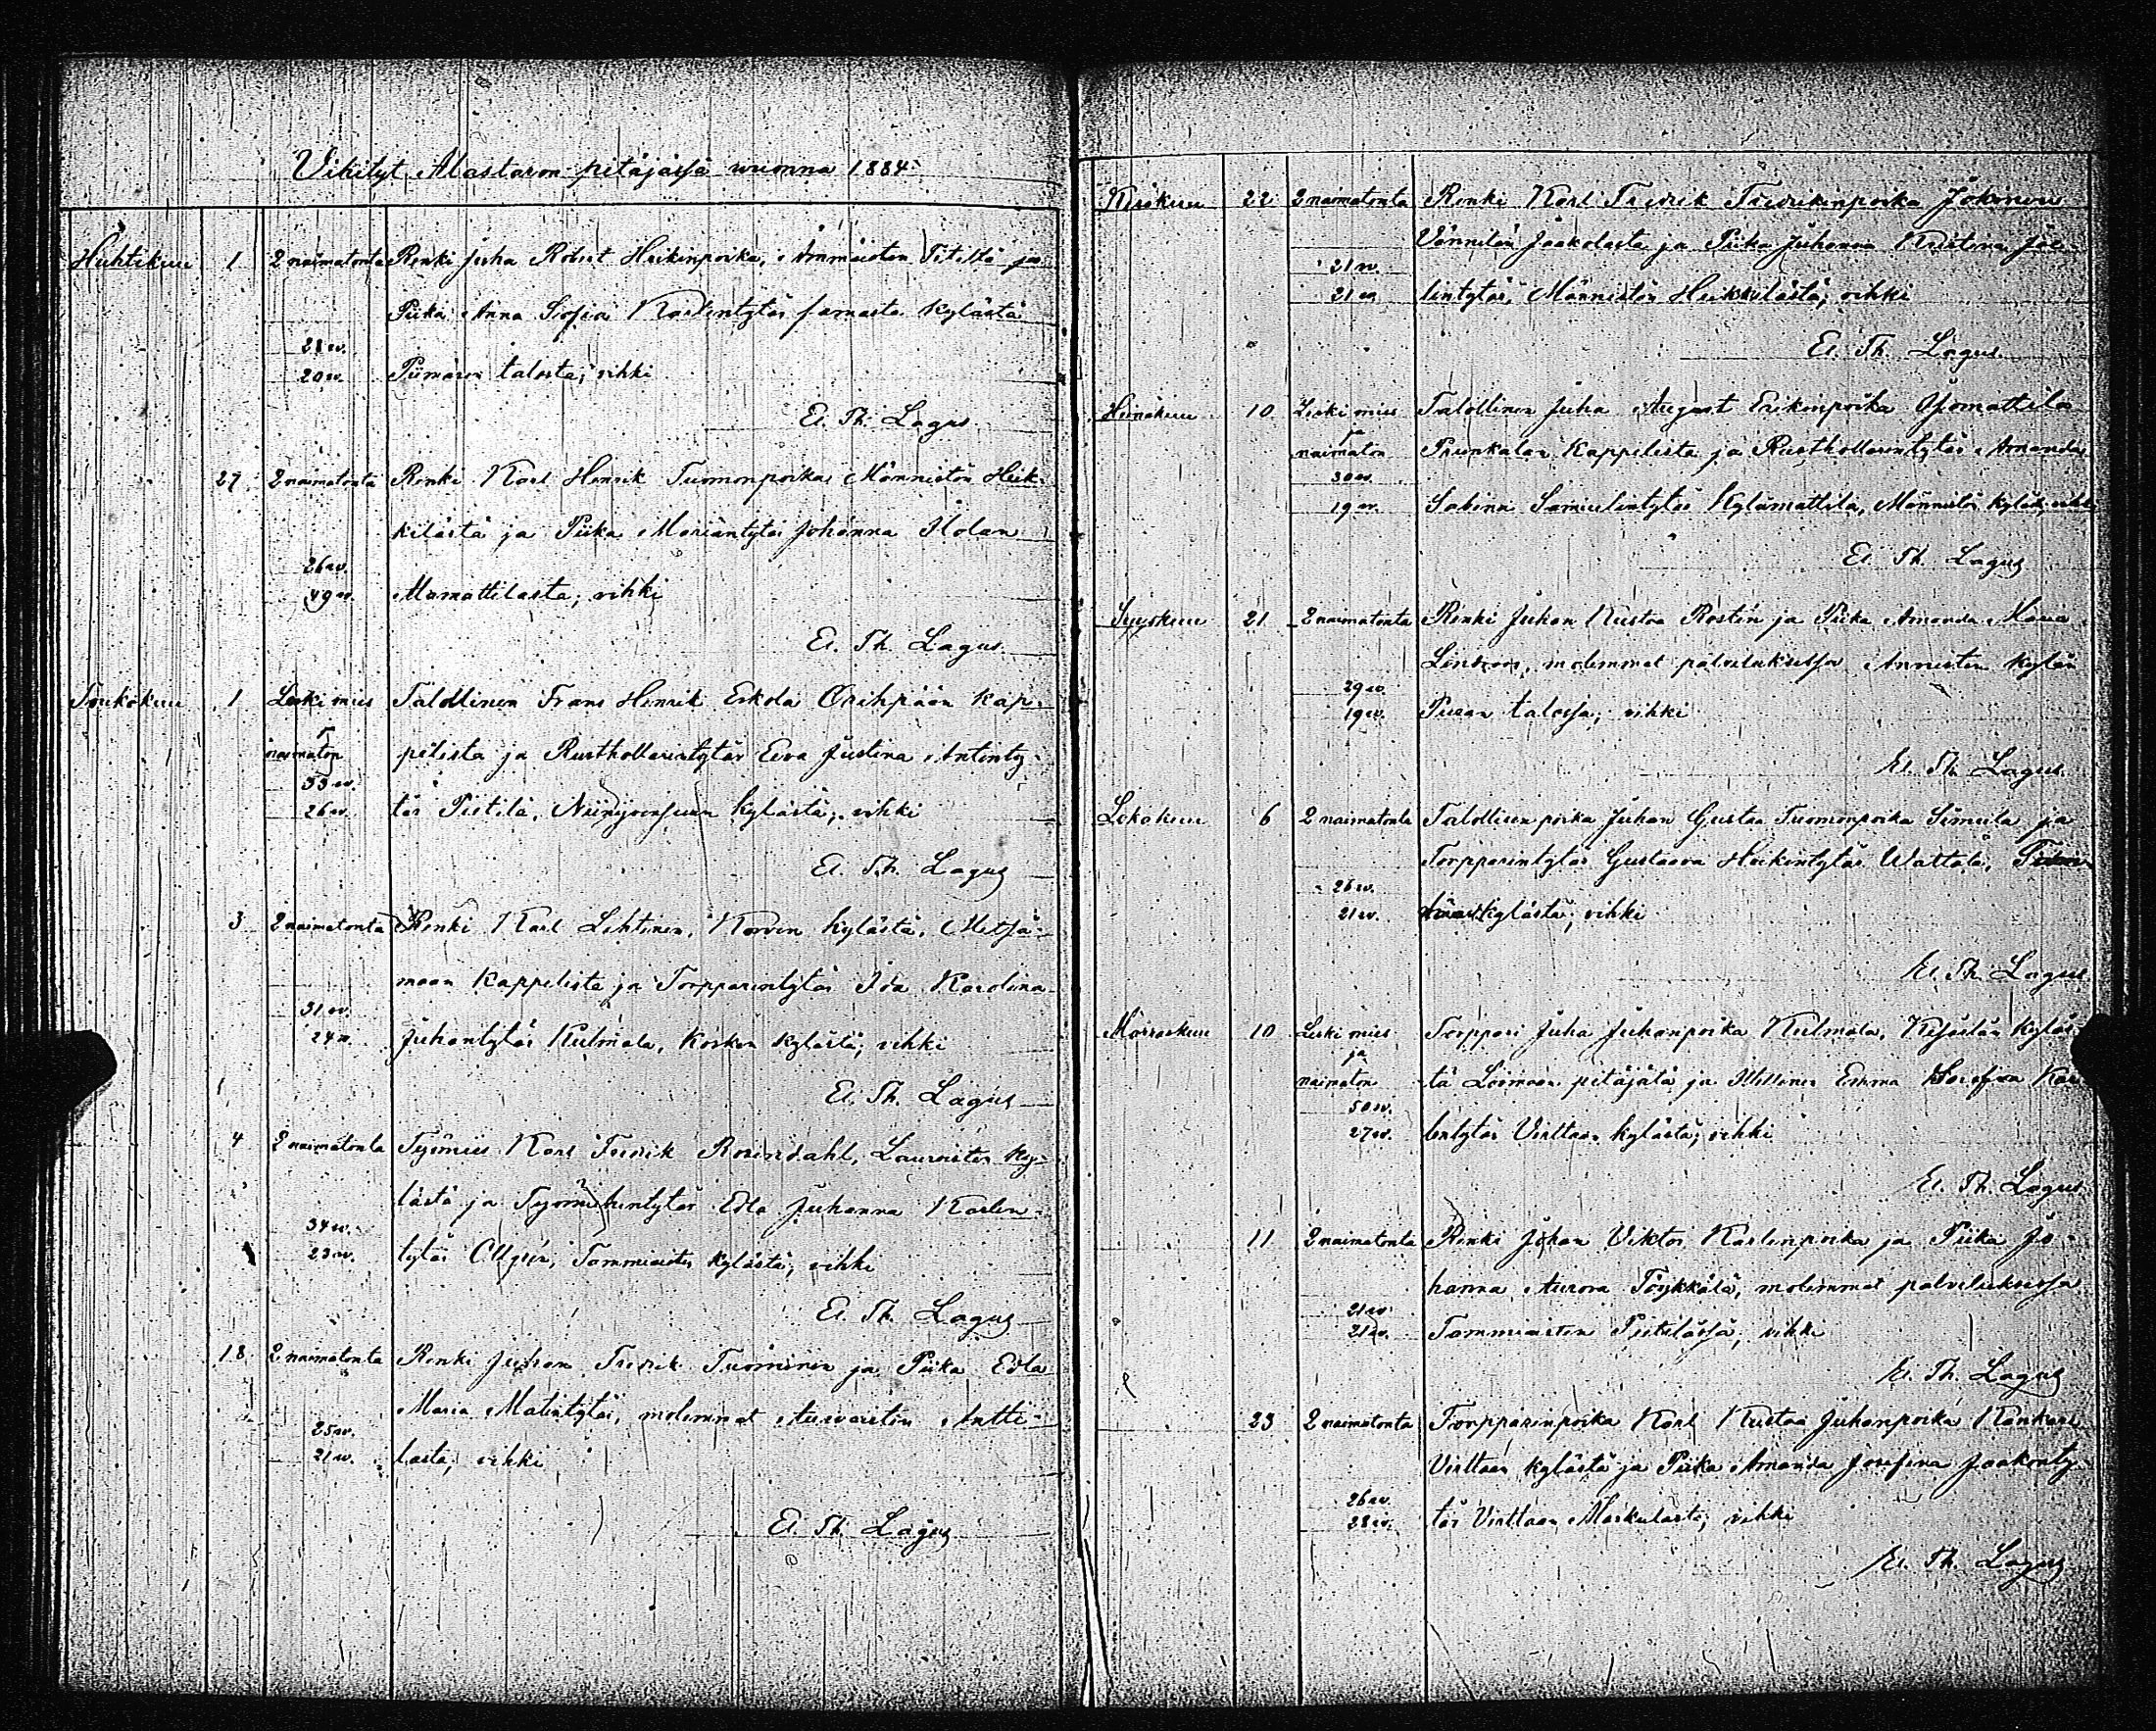 Vihityt Alastaron pitäjässä wuonna 1884
Huhtikuu 1 2 naimatonta Renki Juha Robert Heikinpoika, Ammäisten Pitiltä ja
Piika Anna Sofia Karlentytär samasta kylästä
28 w.
20 w. Piimäsen talosta; vihki
El. Th. Lagus
27 2 naimatonta Renki Karl Henrik Tuomonpoika Männistön Heik-
kilästä ja Piika Mariantytär Johanna Kolan
26 w.
49 w. Mämattilasta; vihki
El. Th. Lagus
Toukokuu 1 Leski mies Talollinen Frans Henrik Erkola Orihpään Kap-
ja
naimaton pelista ja Rusthollarintytär Eeva Justina Antinty-
33 w.
26 w. tär Pietilä, Niinijoensuun kylästä; vihki
El. Th. Lagus
3 2 naimatonta Renki Karl Lehtinen, Korven kylästä, Metsä-
maan Kappelista ja Torpparintytär Ida Karolina
31 w.
24 w. Juhantytär Kulmala, Kosken kylästä; vihki
El. Th. Lagus
4 2 naimatonta Työmies Karl Fredrik Rosendahl, Lauroisten ky-
lästä ja Työmiehentytär Edla Juhanna Karlen-
34 w.
23 w. tytär Tammiaisten kylästä; vihki
El. Th. Lagus
18 2 naimatonta Renki Juhan Fredrik Tuominen ja Piika Edla
Maria Matintytär, molemmat Auvaisten Antti-
25 w.
21 w. lasta; vihki
El. Th. Lagus
Kesäkuu 22 2 naimatonta Renki Karl Fredrik Fredrikinpoika Jokinen
Vännilän Jaakolasta ja Piika Juhanna Kristina Joe-
21 w.
21 w. lintytär, Männistön Heikkilästä; vihki
El. Th. Lagus
Heinäkuu 10 Leski mies Talollinen Juha August Erikinpoika Ojamattila
ja
naimaton Prunkalan Kappelista ja Rusthollarintytär Amanda
30 w.
19 w. Sabina Samuelintytär Kylämattila, Männistön kylästä; vihki
El. Th. Lagus
Syyskuu 21 2 naimatonta Renki Juhan Kustaa Rostén ja Piika Amanda Maria
Lindroos, molemmat palveluksessa Annisten kylän
29 w.
19 w. talossa; vihki
El. Th. Lagus
Lokakuu 6 2 naimatonta Talollisen poika Juhan Gustaa Tuomonpoika Simula ja
Torpparintytär Gustaava Heikintytär Wattala,
26 w.
21 w. kylästä; vihki
El. Th. Lagus
Marraskuu 10 Leski mies Torppari Juha Juhanpoika Kulmala, Kojonlan kyläs-
ja
naimaton tä Loimaan pitäjätä ja Itsellinen Emma Josefina Kar-
50 w.
27 w. lentytär Virttaan kylästä; vihki
El. Th. Lagus
11 2 naimatonta Renki Johan Viktor Karlenpoika ja Piika Jo-
hanna Aurora Töykkälä, molemmat palveluksessa
21 w.
21 w. Tammiaisten Pietilässä; vihki
El. Th. Lagus
23 2 naimatonta Torpparinpoika Karl Kustaa Juhanpoika Kankare
Virttaan kylästä ja Piika Amanda Josefina Jaakonty-
26 w.
28 w. tär Virttaan Markulasta; vihki
El. Th. Lagus